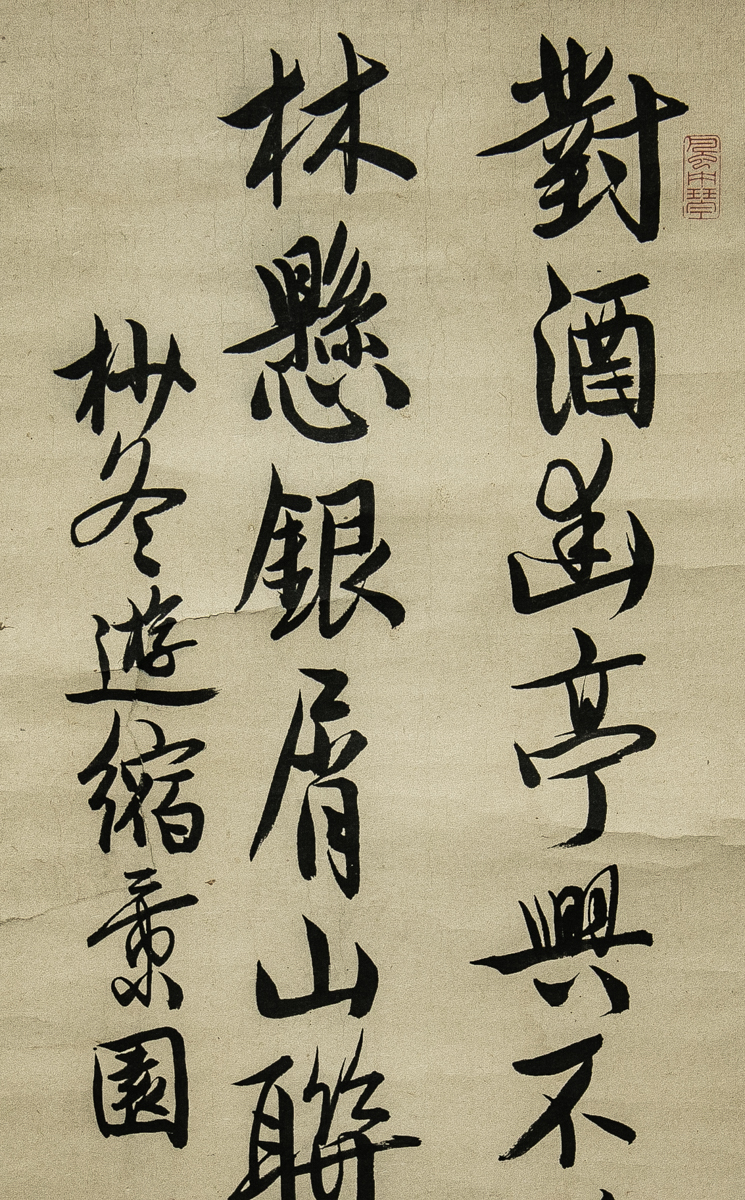 對酒幽亭興不
林懸銀屑山聯
杪冬遊縮景園